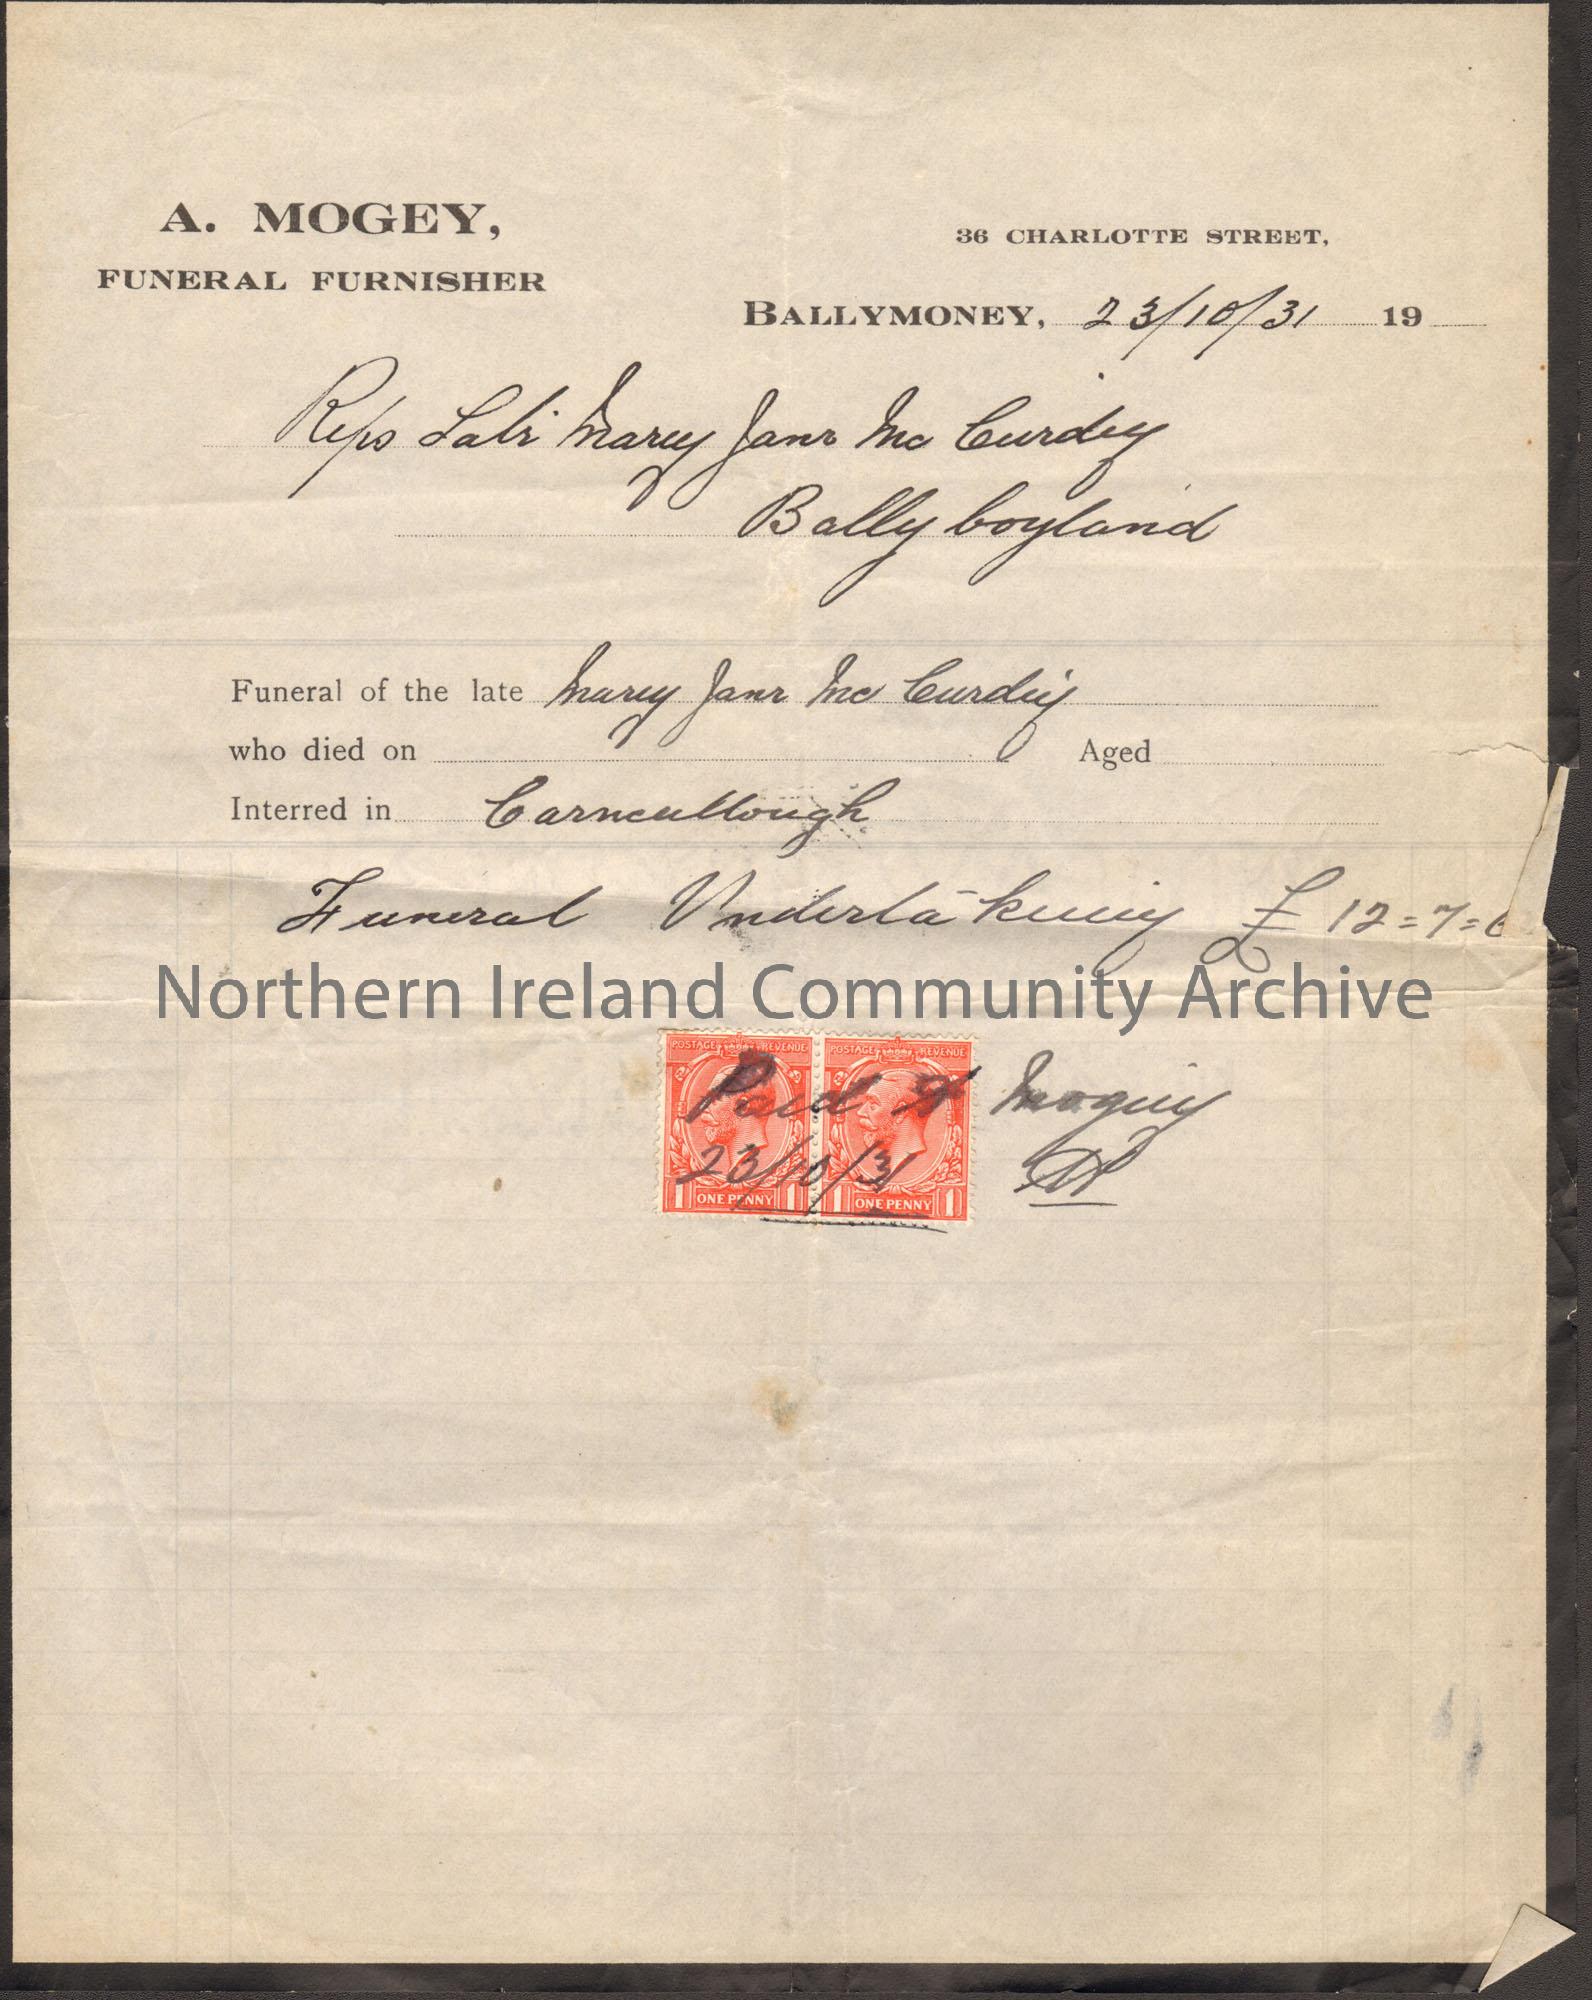 A. MOGEY,
FUNERAL FURNISHER
36 CHARLOTTE STREET,
BALLYMONEY, 23/10/31 19
Reps Late Mary Jane Mc Curdy
Ballyboyland
Funeral of the late Mary Jane Mc Curdy
who died on Aged
Interred in Carncullough
Funeral Undertakeing £ 12=7=6
Northern Ireland Community Archive
POSTAGE REVENUE POSTAGE REVENUE
Paid A Mogey
23/10/31
1 ONE PENNY 1 1 ONE PENNY 1